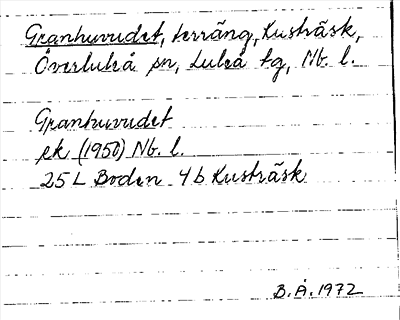 Granhuvudet, terräng, Kusträsk,
Överluleå sn, Luleå tg, Nb. l.
Granhuvudet
ek (1950) Nb. l.
25 L Boden 4 b Kusträsk
B. Å. 1972